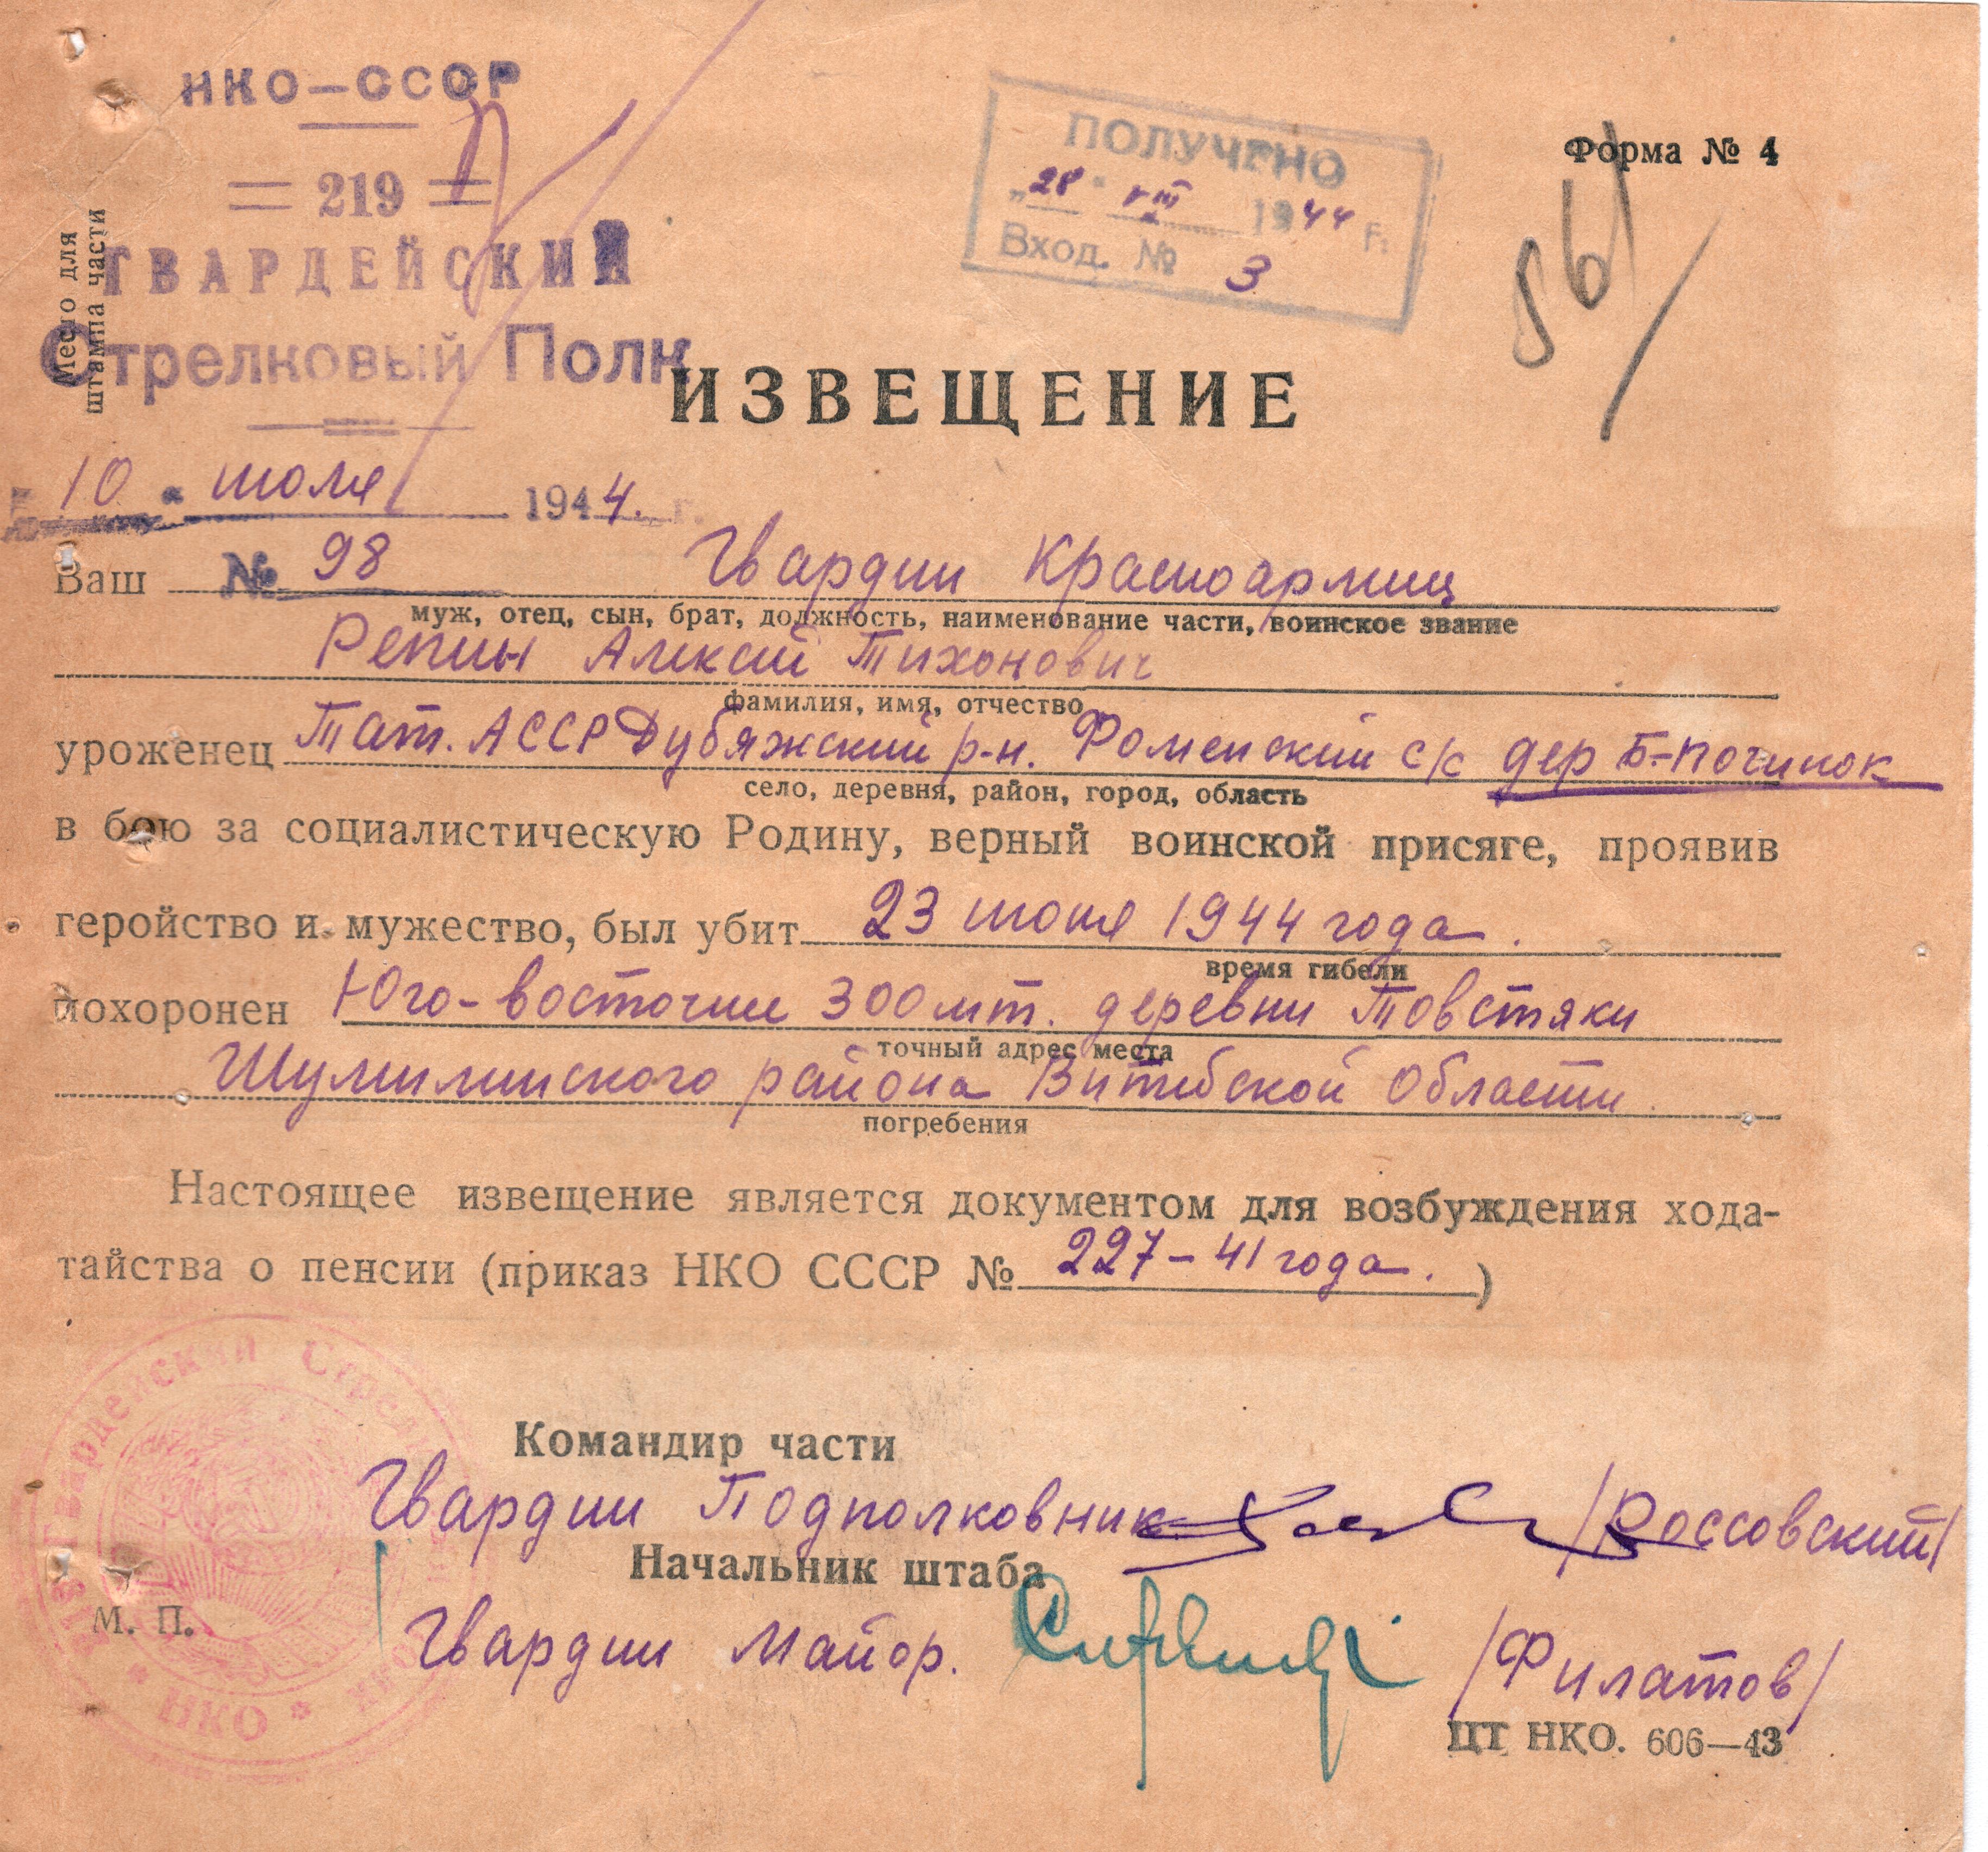 НКО-СССР
= 219 =
ГВАРДЕЙСКИЙ
Стрелковый Полк
Место для
штампа части
ПОЛУЧЕНО
„28" VIII 1944 г.
Вход. № 3
Форма № 4
561
ИЗВЕЩЕНИЕ
10 " июля 1944. г.
№ 98
Ваш Гвардии Красноармиец
муж, отец, сын, брат, должность, наименование части, воинское звание
Репин Алексей Тихонович
фамилия, имя, отчество
уроженец Тат. АССР Дубяжский р-н. Фоменский с/с дер Б-Починок
село, деревня, район, город, область
в бою за социалистическую Родину, верный воинской присяге, проявив
геройство и мужество, был убит 23 июня 1944 года.
время гибели
похоронен Юго-восточнее 300 мт. деревни Товстяки
точный адрес места
Шумилинского района Витебской Области
погребения
Настоящее извещение является документом для возбуждения хода-
тайства о пенсии (приказ НКО СССР № 227-41 года. )
Командир части
Гвардии Подполковник /Россовский/
Начальник штаба
Гвардии Майор. /Филатов/
М. П.
Гвардейский Стрелк
* НКО *
ЦТ НКО. 606—43